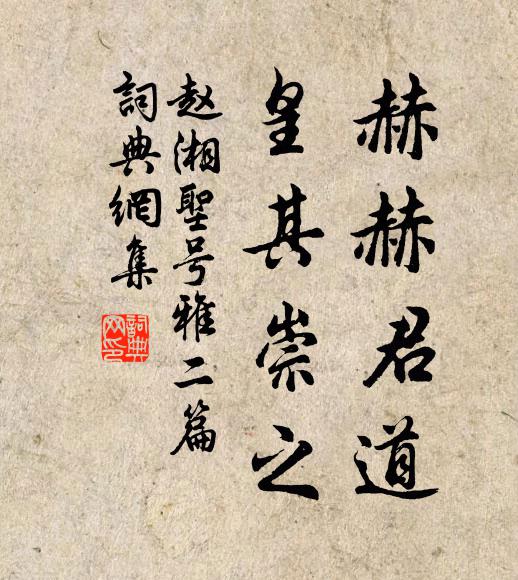 赫赫君道
皇其崇之
赵湘聖号雅二篇
詞典網集
詞典
网印